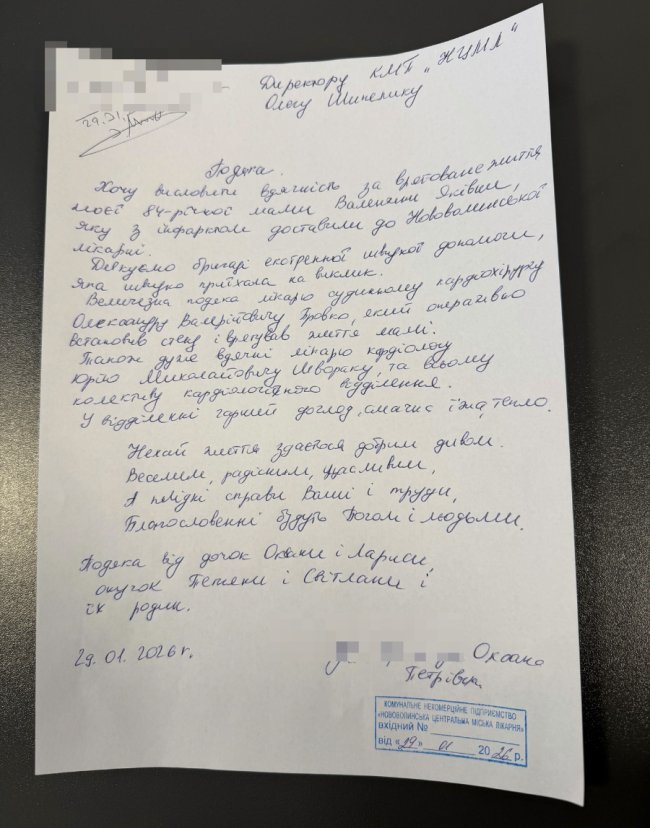 Директору КМП „НЦМЛ"
Олегу Шипелику
29.01.
Подяка.
Хочу висловити вдячність за врятоване життя
моєї 84-річної мами Валентини Яківни,
яку з інфарктом доставили до Нововолинської
лікарні.
Дякуємо бригаді екстренної швидкої допомоги,
яка швидко приїхала на виклик.
Величезна подяка лікарю судинному кардіохірургу
Олександру Валерійовичу Бровко, який оперативно
встановив стенд і врятував життя мамі.
Також дуже вдячні лікарю кардіологу
Юрію Миколайовичу Швораку, та всьому
колективу кардіологічного відділення.
У відділенні гарний догляд, смачна їжа, тепло.
Нехай життя здається добрим дивом.
Веселим, радісним, щасливим,
А плідні справи Ваші і труди,
Благословенні будуть Богом і людьми.
Подяка від дочок Оксани і Лариси,
онучок Тетяни і Світлани і
їх родин.
29.01.2026 г.
Оксана
Петрівна
КОМУНАЛЬНЕ НЕКОМЕРЦІЙНЕ ПІДПРИЄМСТВО
«НОВОВОЛИНСЬКА ЦЕНТРАЛЬНА МІСЬКА ЛІКАРНЯ»
вхідний №
від «29» 01 2026 р.